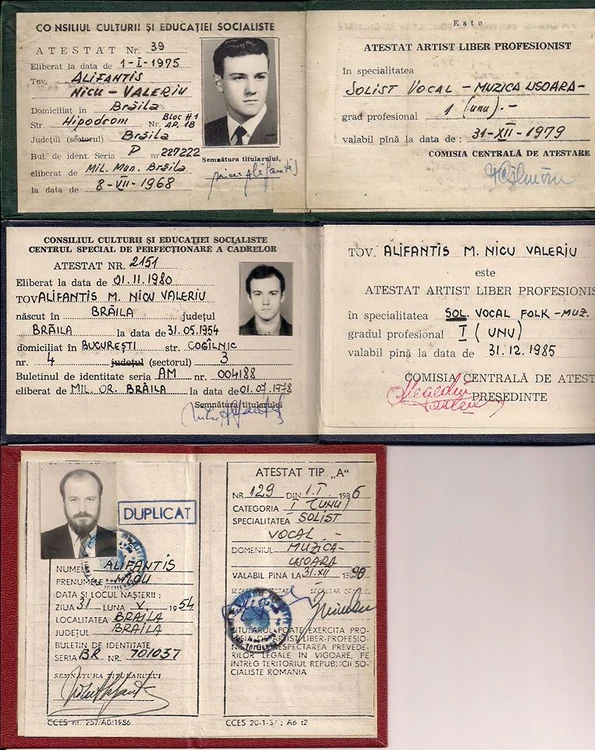 CONSILIUL CULTURII ȘI EDUCAȚIEI SOCIALISTE
ATESTAT Nr. 39
Eliberat la data de 1-I-1975
Tov. ALIFANTIS
NICU-VALERIU
Domiciliat în Brăila
Str. Hipodrom Bloc H1 Nr. AP. 18
Județul (sectorul) Brăila
Bul. de ident. Seria P nr 227222
eliberat de Mil. Mun. Brăila
la data de 8-VII-1968
Semnătura titularului,
Este
ATESTAT ARTIST LIBER PROFESIONIST
în specialitatea
SOLIST VOCAL - MUZICA USOARA-
grad profesional 1 (unu).-
valabil pînă la data de: 31-XII-1979
COMISIA CENTRALĂ DE ATESTARE
CONSILIUL CULTURII ȘI EDUCAȚIEI SOCIALISTE
CENTRUL SPECIAL DE PERFECȚIONARE A CADRELOR
ATESTAT NR. 2151
Eliberat la data de 01.11.1980
TOV ALIFANTIS M. NICU VALERIU
născut în BRĂILA județul
BRĂILA la data de 31.05.1954
domiciliat în BUCUREȘTI str. COGÎLNIC
nr. 4 județul (sectorul) 3
Buletinul de identitate seria AM nr. 004188
eliberat de MIL. OR. BRĂILA la data de 01.07.1978
Semnătura titularului
TOV. ALIFANTIS M. NICU VALERIU
este
ATESTAT ARTIST LIBER PROFESIONIS
în specialitatea SOL. VOCAL FOLK - MUZ.
gradul profesional I (UNU)
valabil pînă la data de 31.12.1985
COMISIA CENTRALĂ DE ATEST
PREȘEDINTE
DUPLICAT
NUMELE ALIFANTIS
PRENUMELE NICU
DATA ȘI LOCUL NAȘTERII:
ZIUA 31 LUNA V. 1954
LOCALITATEA BRAILA
JUDEȚUL BRAILA
BULETIN DE IDENTITATE
SERIA BR NR. 701037
SEMNĂTURA TITULARULUI
CCES nr. 257/AD/1986
ATESTAT TIP „A"
NR 129 DIN 1.I. 1986
CATEGORIA I (UNU)
SPECIALITATEA SOLIST
VOCAL -
DOMENIUL MUZICA-
USOARA
VALABIL PÎNĂ LA 31.XII 1990
TITULARUL POATE EXERCITA PRO-
FESIA DE ARTIST LIBER-PROFESIO-
RESPECTAREA PREVEDE-
RILOR LEGALE ÎN VIGOARE, PE
ÎNTREG TERITORIUL REPUBLICII SO-
CIALISTE ROMANIA